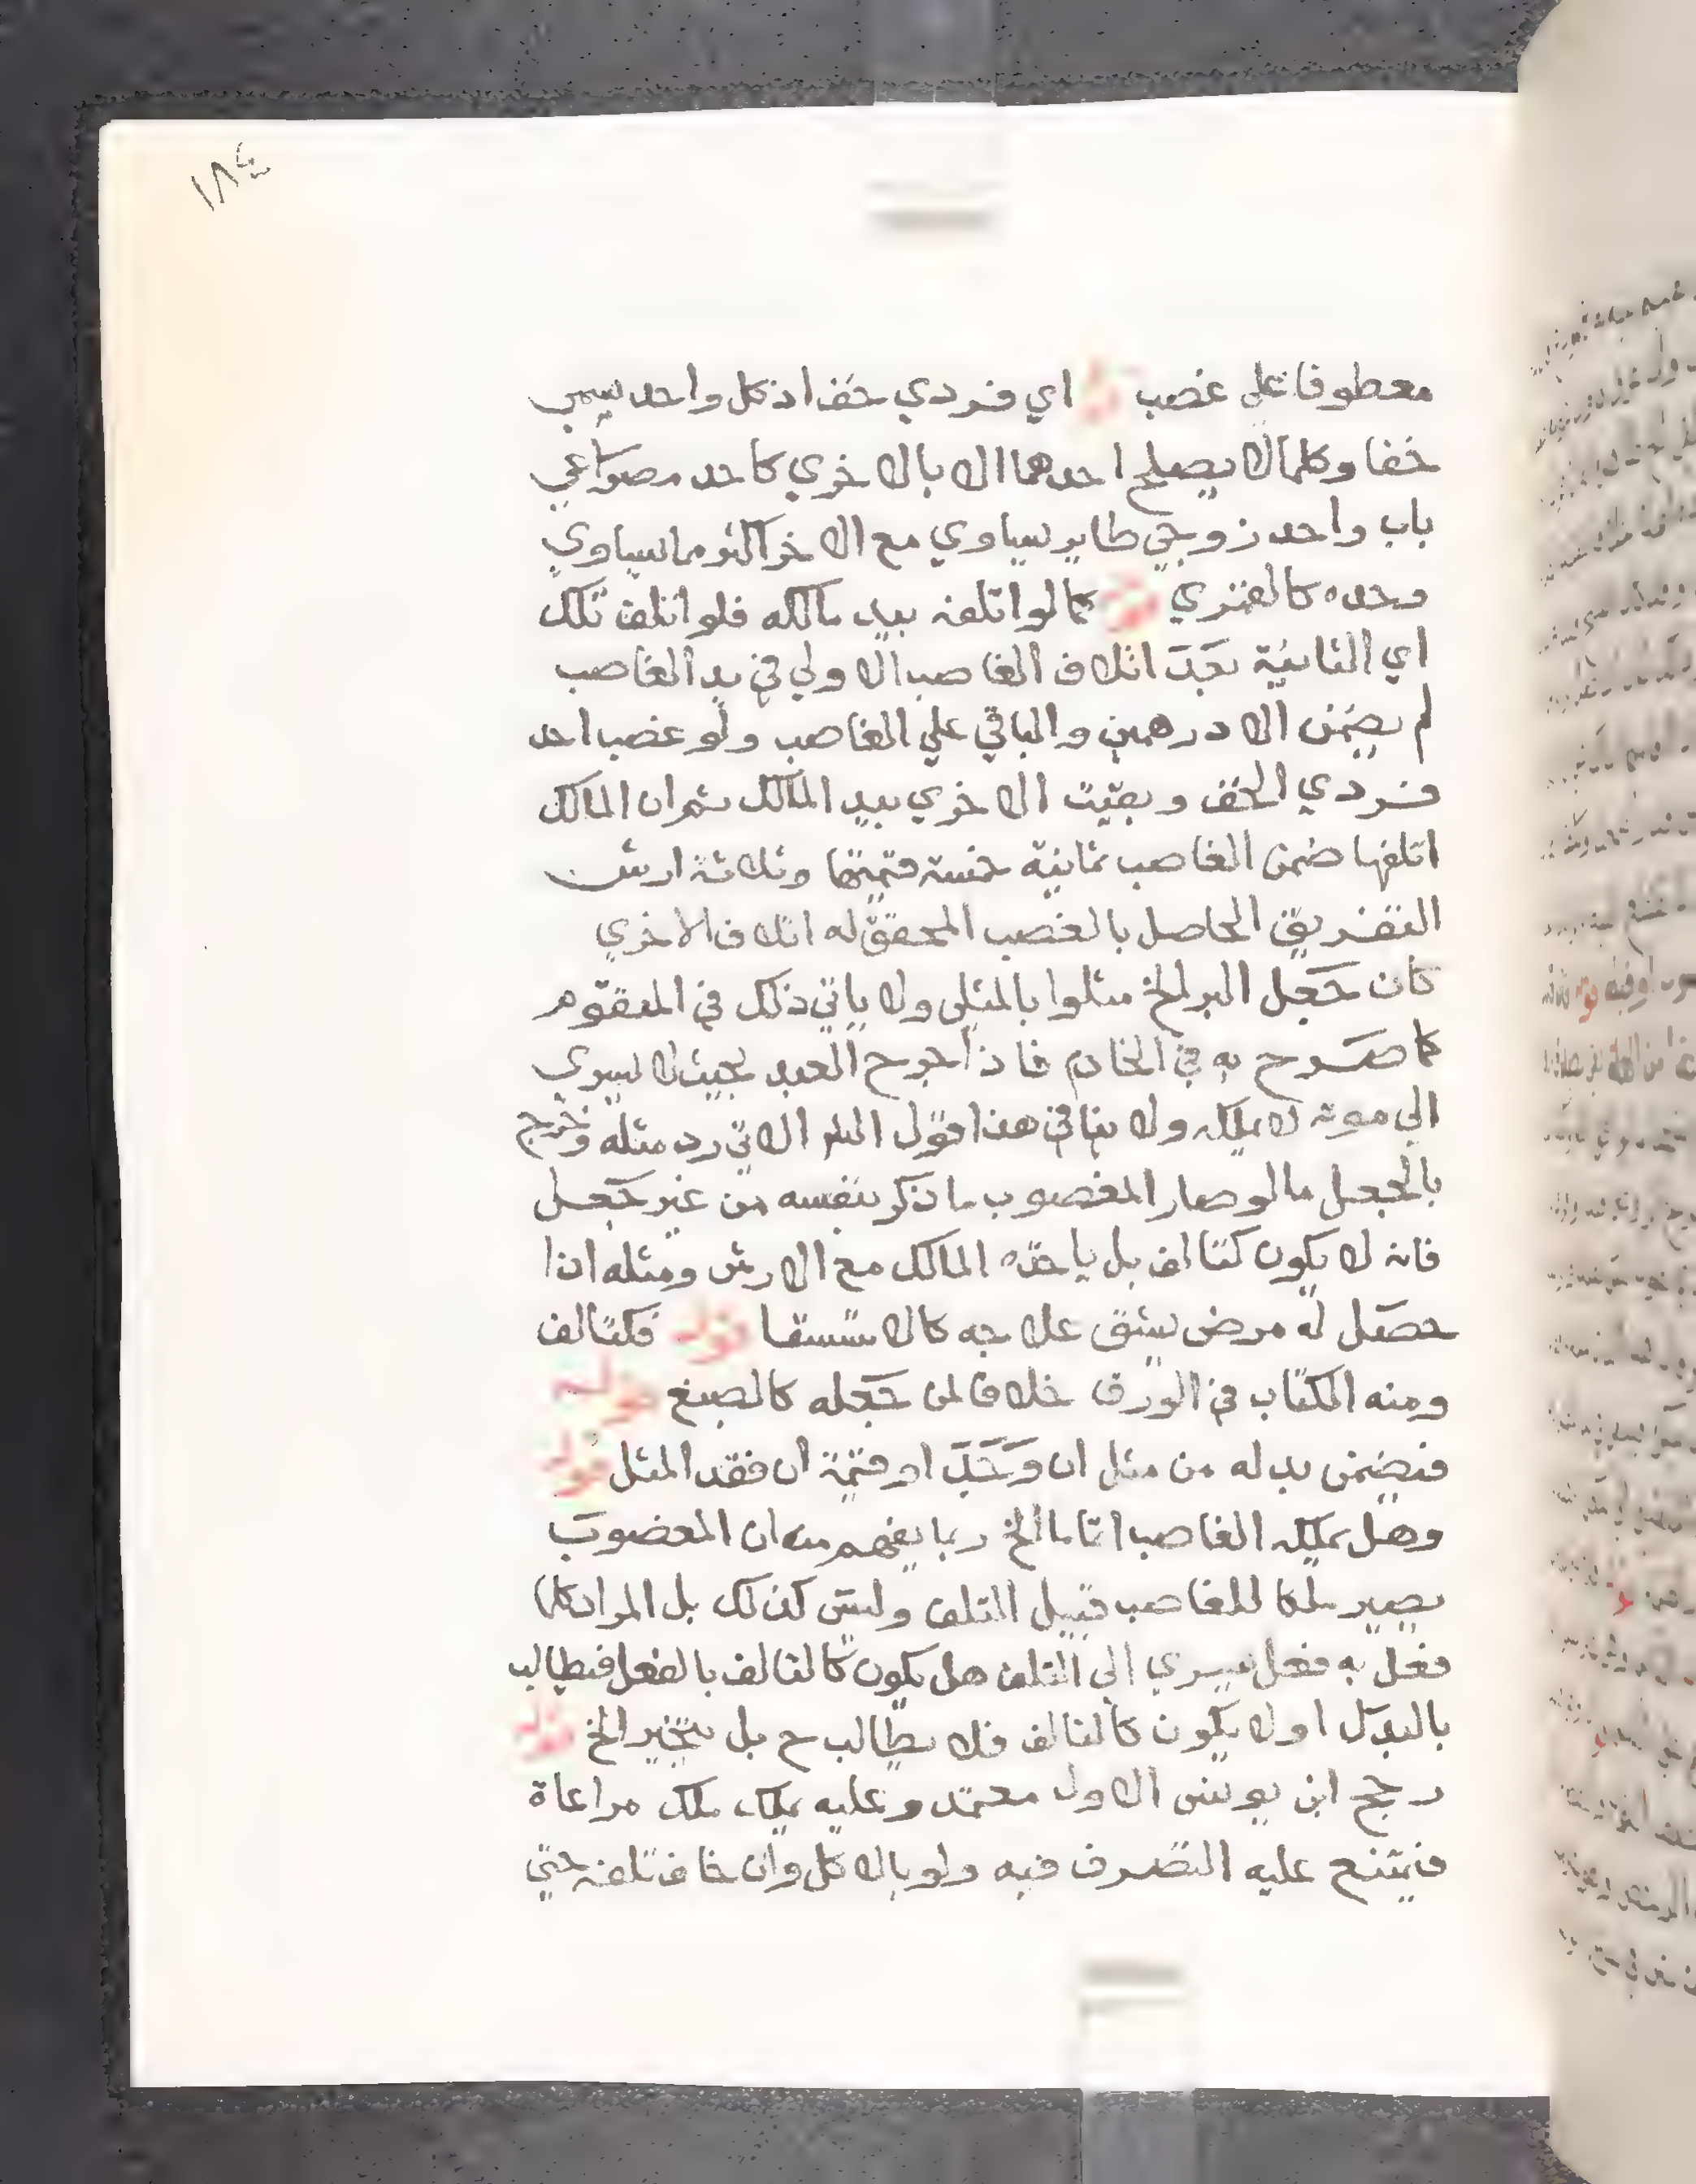 ١٨٤
معطوفا علي غصب اي فردي خف اذ كل واحد يسمي
خفا وكلما لا يصلح احدهما الا بالاخري كاحد مصراعي
باب واحد زوجي طاير يساوي مع الاخر اكثر مما يساوي
وحده كالقمري قوله كما لو اتلفه بيد مالكه فلو اتلف تلك
اي الثانية بعد اتلاف الغاصب الاولي في يد الغاصب
لم يضمن الا درهمين والباقي علي الغاصب ولو غصب احد
فردي الخف وبقيت الاخري بيد المالك ثم ان المالك
اتلفها ضمن الغاصب ثمانية خمسة قيمتها وثلاثة ارش
التفريق الحاصل بالغصب المحقق له اتلاف الاخري
كان جعل البر الخ مثلوا بالمثلي ولا ياتي ذلك في المتقوم
كما صرح به في الخادم فاذا جرح العبد بحيث لا يسري
الي موته لا يملكه ولا ينافي هذا قول الاتي رد مثله وخرج
بالجعل ما لو صار المغصوب ما ذكر بنفسه من غير جعل
فانه لا يكون كتالف بل ياخذه المالك مع الارش ومثله اذا
حصل له مرض يشق علاجه كالاستسقا قوله فكتالف
ومنه الكتاب في الورق خلافا لمن جعله كالصبغ قوله
فيضمن بدله من مثل ان وجد او قيمة ان فقد المثل قوله
وهل يملكه الغاصب اتماما الخ ربما يفهم منه ان المغصوب
يصير ملكا للغاصب قبيل التلف وليس كذلك بل المراد كلما
فعل به فعل يسري الي التلف هل يكون كالتالف بالفعل فيطالب
بالبدل او لا يكون كالتالف فلا يطالب ح بل يتخير الخ قوله
رجح ابن يونس الاول معتمد وعليه يملك ملك مراعاة
فيمتنع عليه التصرف فيه ولو بالاكل وان خاف تلفه حتي